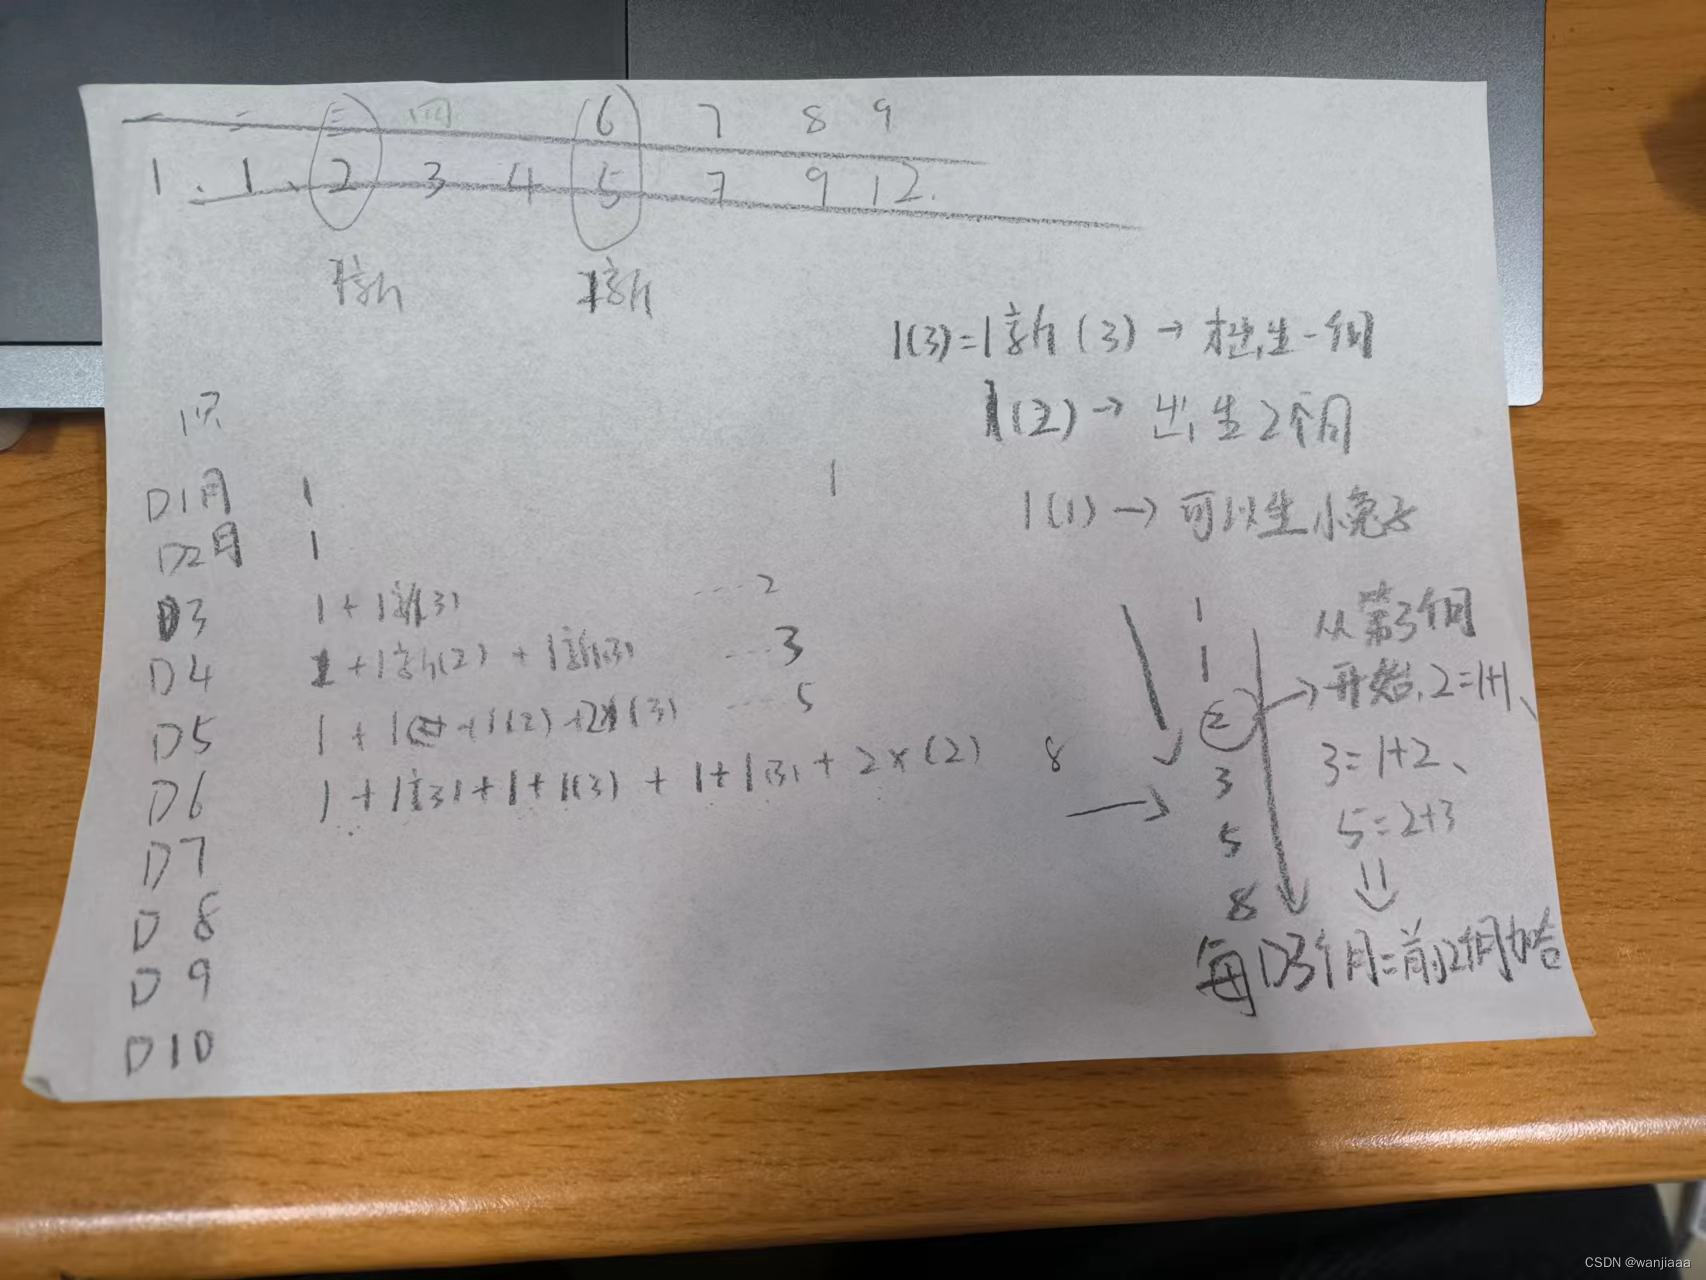 一 二 三 四 6 7 8 9
1、1、2 3 4 5 7 9 12.
1新 1新
1(3)=1新(3) → 才出生一个月
1(2) → 出生2个月
1(1) → 可以生小兔子
D1月 1 1
D2月 1
D3 1+1新(3) ---2
D4 1+1新(2)+1新(3) ---3
D5 1+1 +1(2)+2×1(3) ---5
D6 1+1(3)+1+1(3)+1+1(3)+2×(2) 8
D7
D8
D9
D10
1
1
2
3
5
8
从第3个月
开始,2=1+1、
3=1+2、
5=2+3
每D3个月=前2个月加合
CSDN @wanjiaaa